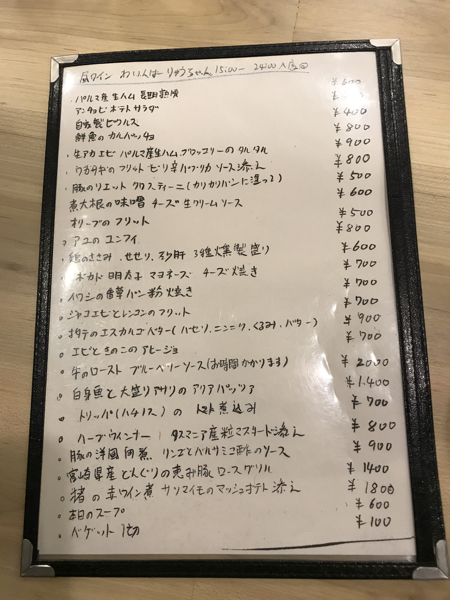 風ワイン わいんばー りゅうちゃん 15:00ー 24:00 入店
パルマ産生ハム 長期熟成 ¥600
アンチョビポテトサラダ
自家製ピクルス ¥400
鮮魚のカルパッチョ ¥800
・生アカエビ パルマ産生ハム ブロッコリーのタルタル ¥900
・ワカサギのフリット ピリ辛パプリカソース添え ¥800
・豚のリエット クロスティーニ(カリカリパンに塗って) ¥500
煮大根の味噌チーズ生クリームソース ¥600
オリーブのフリット ¥500
アユのコンフィ ¥800
鶏のささみ、せせり、砂肝 3種燻製盛り ¥600
アボカド 明太子 マヨネーズ チーズ焼き ¥700
イワシの香草パン粉焼き ¥700
ジャコエビとレンコンのフリット ¥700
ホタテのエスカルゴバター(パセリ、ニンニク、くるみ、バター) ¥900
エビときのこのアヒージョ ¥700
牛のロースト ブルーベリーソース(お時間かかります) ¥2000
白身魚と大盛りアサリのアクアパッツァ ¥1.400
トリッパ(ハチノス)の トマト煮込み ¥700
ハーブウインナー タスマニア産粒マスタード添え ¥800
豚の洋風角煮 リンゴとバルサミコ酢のソース ¥900
宮崎県産どんぐりの恵み豚 ロースグリル ¥1400
猪の赤ワイン煮 サツマイモのマッシュポテト添え ¥1800
本日のスープ ¥600
バゲット 1切 ¥100